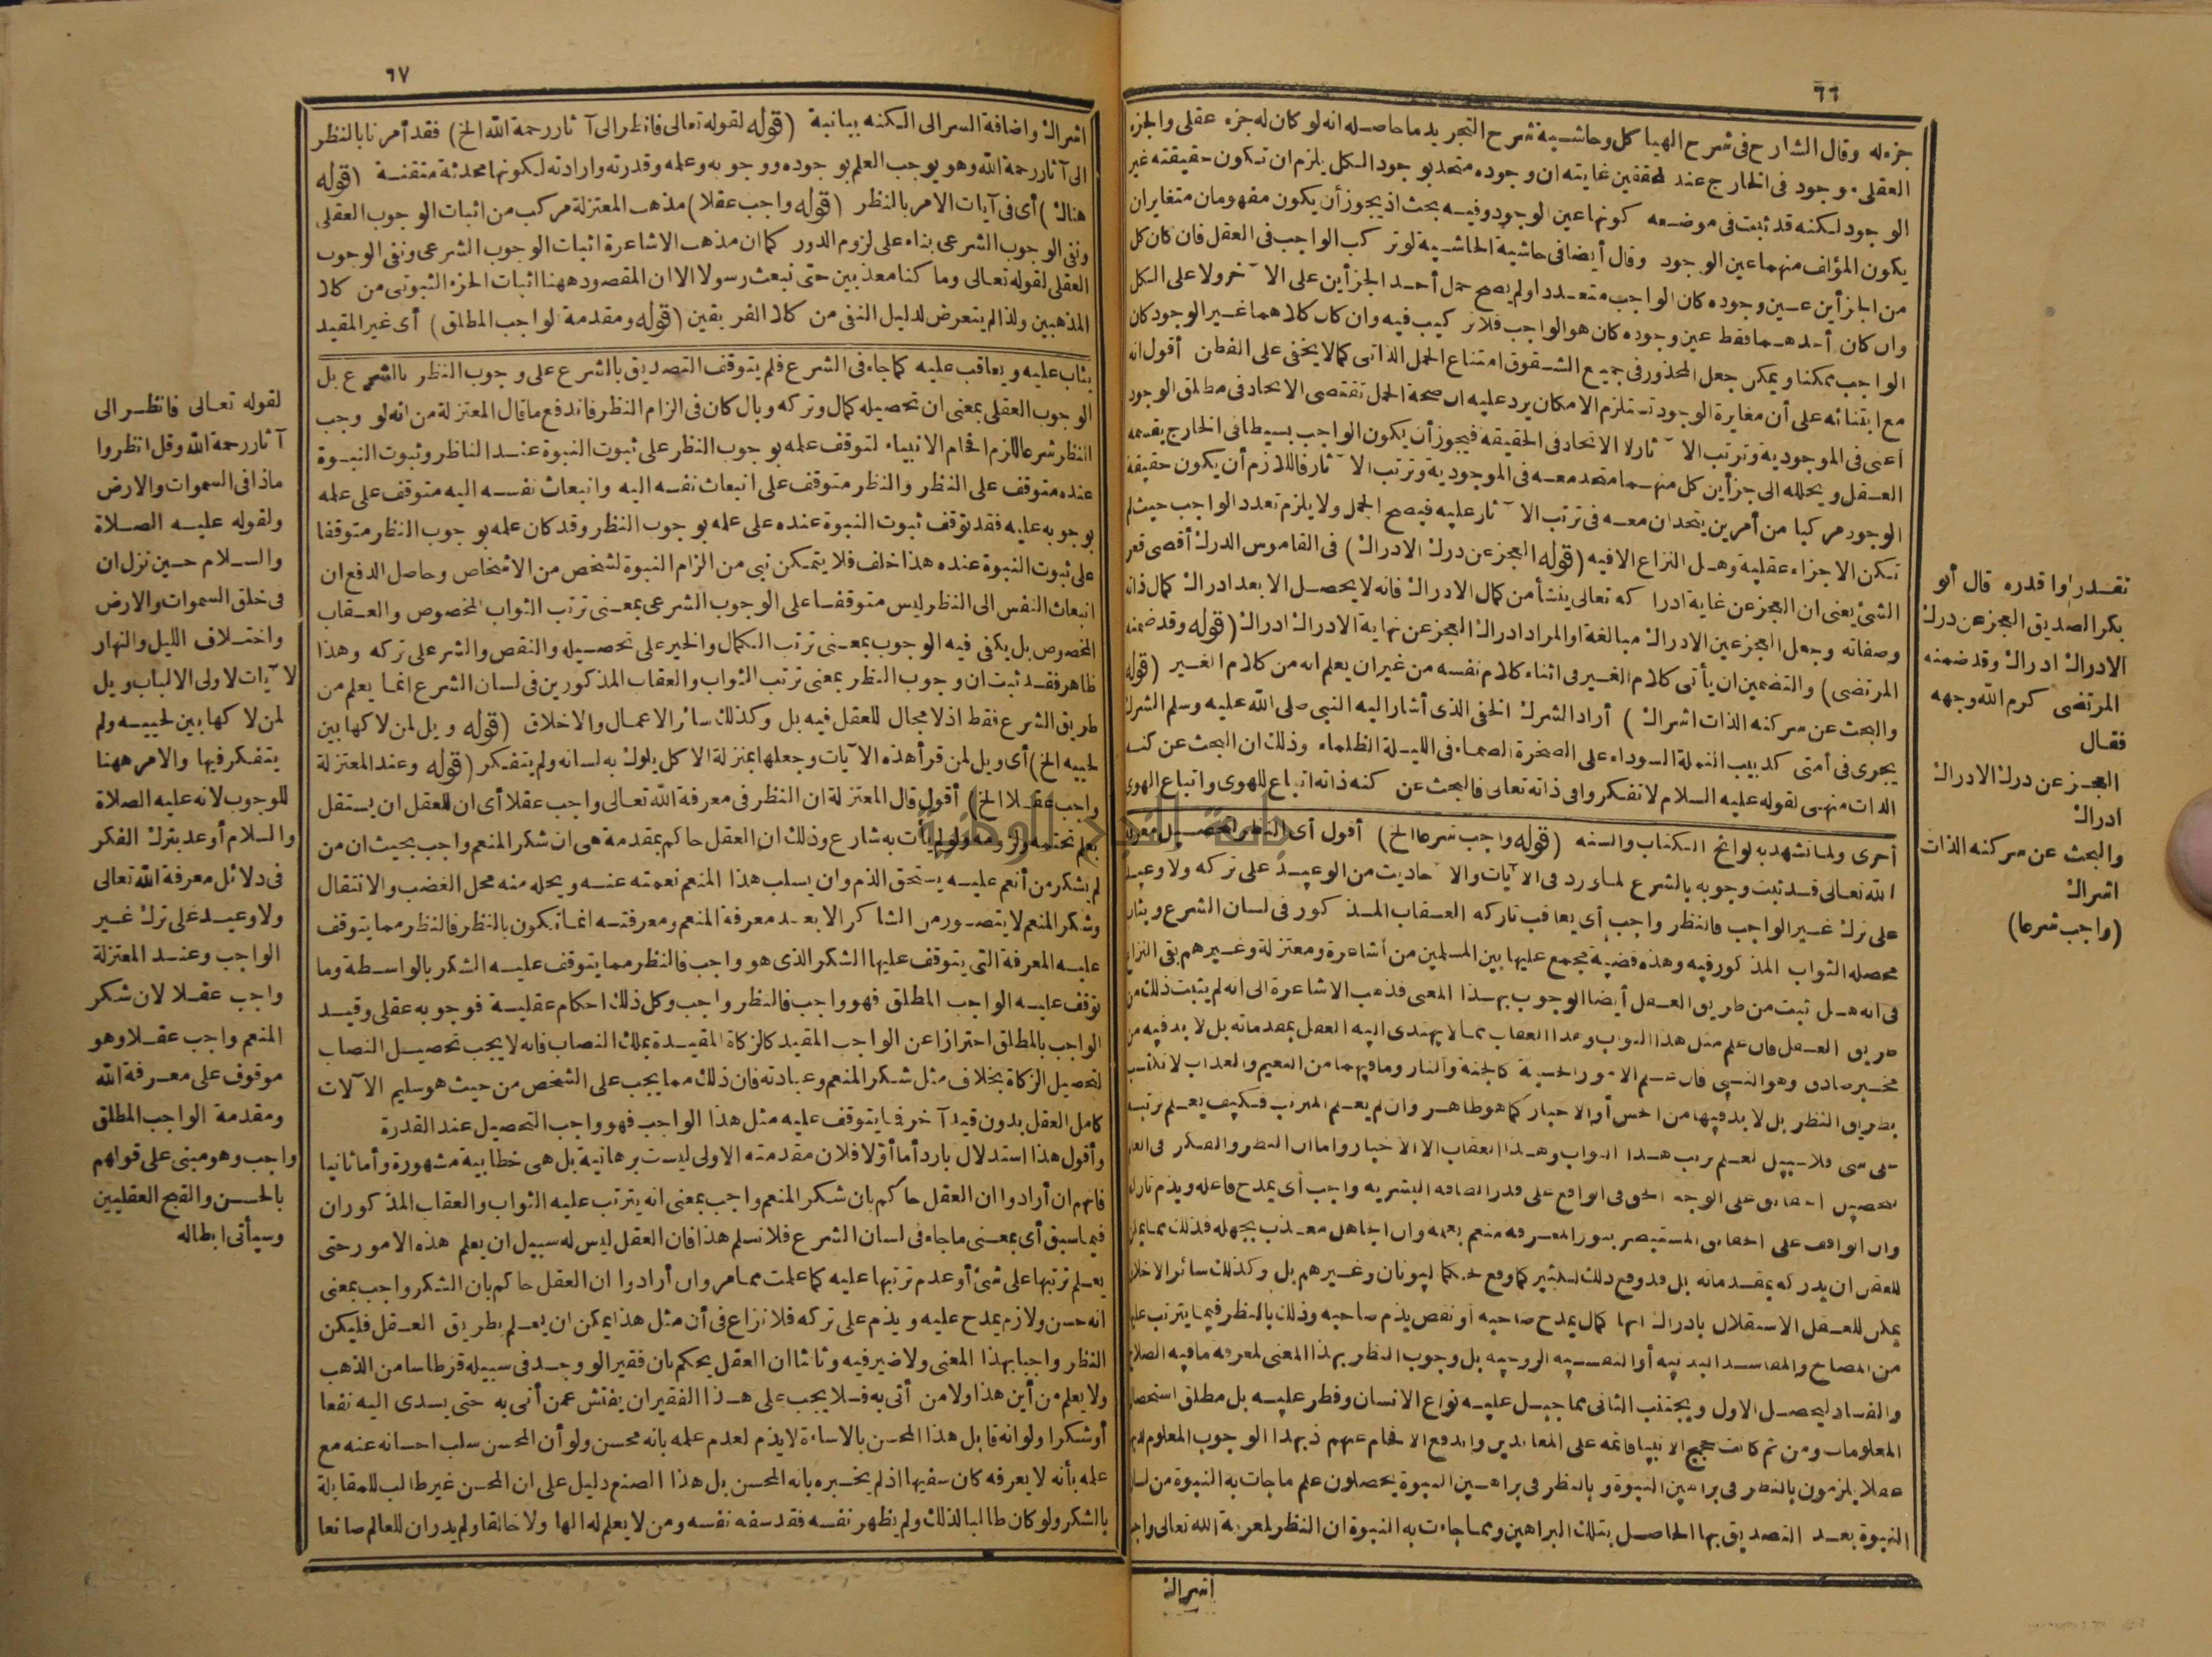 ٦٦
جزء له وقال الشارح فى شرح الهياكل وحاشية شرح التجريد ما حاصله انه لو كان له جزء عقلى والجزء
العقلى موجود فى الخارج عند المحققين غايته ان وجوده متحد بوجود الكل يلزم ان تكون حقيقته غير
الوجود لكنه قد ثبت فى موضعه كونها عين الوجود وفيه بحث اذ يجوز أن يكون مفهومان متغايران
يكون المؤلف منهما عين الوجود وقال أيضا فى حاشية الحاشية لو تركب الواجب فى العقل فان كان كل
من الجزأين عين وجوده كان الواجب متعددا ولم يصح حمل أحد الجزأين على الآخر ولا على الكل
وان كان أحدهما فقط عين وجوده كان هو الواجب فلا تركيب فيه وان كان كلاهما غير الوجود كان
الواجب ممكنا ويمكن جعل المحذور فى جميع الشقوق امتناع الحمل الذاتى كما لا يخفى على الفطن أقول انه
مع ابتنائه على أن مغايرة الوجود تستلزم الامكان يرد عليه ان صحة الحمل تقتضى الاتحاد فى مطلق الوجود
أعنى فى الموجودية وترتب الآثار لا الاتحاد فى الحقيقة فيجوز أن يكون الواجب بسيطا فى الخارج يقسمه
العقل ويحلله الى جزأين كل منهما متحد معه فى الموجودية وترتب الآثار فاللازم أن يكون حقيقة
الوجود مركبا من أمرين يتحدان معه فى ترتب الآثار عليه فيصح الحمل ولا يلزم تعدد الواجب حيث لم
تكن الاجزاء عقلية وهل النزاع الا فيه (قوله العجز عن درك الادراك) فى القاموس الدرك أقصى قعر
الشئ يعنى ان العجز عن غاية ادراكه تعالى ينشأ من كمال الادراك فانه لا يحصل الا بعد ادراك كمال ذاته
وصفاته وجعل العجز عين الادراك مبالغة او المراد ادراك العجز عن نهاية الادراك ادراك (قوله وقد ضمنه
المرتضى) والتضمين ان يأتى كلام الغير فى اثناء كلام نفسه من غير ان يعلم انه من كلام الغير (قوله
والبحث عن سر كنه الذات اشراك) أراد الشرك الخفى الذى أشار اليه النبى صلى الله عليه وسلم الشرك
يجرى فى أمتى كدبيب النملة السوداء على الصخرة الصماء فى الليلة الظلماء وذلك ان البحث عن كنه
الذات منهى لقوله عليه السلام لا تفكروا فى ذاته تعالى فالبحث عن كنه ذاته اتباع للهوى واتباع الهوى
أخرى ولما تشهد به لوائح الكتاب والسنه (قوله واجب شرعا الخ) أقول أى النظر لتحصيل معرفة
الله تعالى قد ثبت وجوبه بالشرع لما ورد فى الآيات والاحاديث من الوعيد على تركه ولا وعيد
على ترك غير الواجب فالنظر واجب أى يعاقب تاركه العقاب المذكور فى لسان الشرع ويثاب
محصله الثواب المذكور فيه وهذه قضية مجمع عليها بين المسلمين من أشاعرة ومعتزلة وغيرهم بقى النزاع
فى انه هل ثبت من طريق العقل أيضا الوجوب بهذا المعنى فذهب الاشاعرة الى انه لم يثبت ذلك من
طريق العقل فان علم مثل هذا الثواب وهذا العقاب مما لا يهتدى اليه العقل بمقدماته بل لا بد فيه من
مخبر صادق وهو النبى فان علم الامور الحسية كالجنة والنار وما فيهما من النعيم والعذاب لا تكتسب
بطريق النظر بل لا بد فيها من الحس أو الاخبار كما هو ظاهر وان لم يعلم المرتب فكيف يعلم ترتبه
على شى فلا سبيل لعلم ترتب هذا الثواب وهذا العقاب الا الاخبار واما ان النظر والفكر فى العا
لتحصيل الحقائق على الوجه الحق فى الواقع على قدر الطاقة البشريه واجب أى يمدح فاعله ويذم تاركه
وان الواقف على الحقائق المستبصر بنور المعرفه منعم بعلمه وان الجاهل معذب بجهله فذلك مما يمكن
للعقل ان يدركه بمقدماته بل قد وقع ذلك لكثير كما وقع لحكماء اليونان وغيرهم بل وكذلك سائر الاخلاق
يمكن للعقل الاستقلال بادراك انها كمال يمدح صاحبه أو نقص يذم صاحبه وذلك بالنظر فيما يترتب عليها
من المصالح والمفاسد البدنيه أو النفسيه الروحيه بل وجوب النظر بهذا المعنى لمعرفه ما فيه الصلاح
والفساد ليحصل الاول ويجتنب الثانى مما جبل عليه نواع الانسان وفطر عليه بل مطلق استحصال
المعلومات ومن ثم كانت حجج الانبيا قائمه على المعاندين واندفع الافحام عنهم فبهذا الوجوب المعلوم لهم
عقلا يلزمون بالنظر فى براهين النبوة وبالنظر فى براهين النبوة يحصلون علم ما جات به النبوة من لسان
النبوة بعد التصديق بها الحاصل بتلك البراهين ومما جاءت به النبوة ان النظر لمعرفة الله تعالى واجب
اشراك
تقدروا قدره قال أبو
بكر الصديق العجز عن درك
الادراك ادراك وقد ضمنه
المرتضى كرم الله وجهه
فقال
العجز عن درك الادراك
ادراك
والبحث عن سر كنه الذات
اشراك
(واجب شرعا)
٦٧
اشراك واضافة السر الى الكنه بيانية (قوله لقوله تعالى فانظر الى آثار رحمة الله الخ) فقد أمرنا بالنظر
الى آثار رحمة الله وهو يوجب العلم بوجوده ووجوبه وعلمه وقدرته وارادته لكونها محدثة متقنة (قوله
هناك) أى فى آيات الامر بالنظر (قوله واجب عقلا) مذهب المعتزلة مركب من اثبات الوجوب العقلى
ونفى الوجوب الشرعى بناء على لزوم الدور كما ان مذهب الاشاعرة اثبات الوجوب الشرعى ونفى الوجوب
العقلى لقوله تعالى وما كنا معذبين حتى نبعث رسولا الا ان المقصود ههنا اثبات الجزء الثبوتى من كلا
المذهبين ولذا لم يتعرض لدليل النفى من كلا الفريقين (قوله ومقدمة الواجب المطلق) أى غير المقيد
يثاب عليه ويعاقب عليه كما جاء فى الشرع فلم يتوقف التصديق بالشرع على وجوب النظر بالشرع بل
الوجوب العقلى بمعنى ان تحصيله كمال وتركه وبال كان فى الزام النظر فاندفع ما قال المعتزلة من انه لو وجب
النظر شرعا للزم افحام الانبياء لتوقف علمه بوجوب النظر على ثبوت النبوة عند الناظر وثبوت النبوة
عنده متوقف على النظر والنظر متوقف على انبعاث نفسه اليه وانبعاث نفسه اليه متوقف على علمه
بوجوبه عليه فقد توقف ثبوت النبوة عنده على علمه بوجوب النظر وقد كان علمه بوجوب النظر متوقفا
على ثبوت النبوة عنده هذا خلف فلا يتمكن نبى من الزام النبوة لشخص من الاشخاص وحاصل الدفع ان
انبعاث النفس الى النظر ليس متوقفا على الوجوب الشرعى بمعنى ترتب الثواب المخصوص والعقاب
المخصوص بل يكفى فيه الوجوب بمعنى ترتب الكمال والخير على تحصيله والنقص والشر على تركه وهذا
ظاهر فقد ثبت ان وجوب النظر بمعنى ترتب الثواب والعقاب المذكورين فى لسان الشرع انما يعلم من
طريق الشرع فقط اذ لا مجال للعقل فيه بل وكذلك سائر الاعمال والاخلاق (قوله ويل لمن لاكها بين
لحييه الخ) أى ويل لمن قرأ هذه الآيات وجعلها بمنزلة الاكل يلوك به لسانه ولم يتفكر (قوله وعند المعتزلة
واجب عقلا الخ) أقول قال المعتزلة ان النظر فى معرفة الله تعالى واجب عقلا أى ان للعقل ان يستقل
بعلم تحتمه ولزومه ولو لم يأت به شارع وذلك ان العقل حاكم بمقدمة هى ان شكر المنعم واجب بحيث ان من
لم يشكر من أنعم عليه يستحق الذم وان يسلب هذا المنعم نعمته عنه ويحله منه محل الغضب والانتقال
وشكر المنعم لا يتصور من الشاكر الا بعد معرفة المنعم ومعرفته انما تكون بالنظر فالنظر مما يتوقف
عليه المعرفة التى يتوقف عليها الشكر الذى هو واجب فالنظر مما يتوقف عليه الشكر بالواسطة وما
توقف عليه الواجب المطلق فهو واجب فالنظر واجب وكل ذلك احكام عقلية فوجوبه عقلى وقيد
الواجب بالمطلق احترازا عن الواجب المقيد كالزكاة المقيدة بملك النصاب فانه لا يجب تحصيل النصاب
لتحصيل الزكاة بخلاف مثل شكر المنعم وعبادته فان ذلك مما يجب على الشخص من حيث هو سليم الآلات
كامل العقل بدون قيد آخر فما يتوقف عليه مثل هذا الواجب فهو واجب التحصيل عند القدرة
وأقول هذا استدلال بارد أما أولا فلان مقدمته الاولى ليست برهانية بل هى خطابية مشهورة وأما ثانيا
فانهم ان أرادوا ان العقل حاكم بان شكر المنعم واجب بمعنى انه يترتب عليه الثواب والعقاب المذكوران
فيما سبق أى بمعنى ما جاء فى لسان الشرع فلا نسلم هذا فان العقل ليس له سبيل ان يعلم هذه الامور حتى
يعلم ترتبها على شئ أو عدم ترتبها عليه كما علمت مما مر وان أرادوا ان العقل حاكم بان الشكر واجب بمعنى
انه حسن ولازم يمدح عليه ويذم على تركه فلا نزاع فى أن مثل هذا يمكن ان يعلم بطريق العقل فليكن
النظر واجبا بهذا المعنى ولا ضير فيه وثالثا ان العقل يحكم بان فقيرا لو وجد فى سبيله قرطاسا من الذهب
ولا يعلم من أين هذا ولا من أتى به فلا يجب على هذا الفقير ان يفتش عمن أتى به حتى يسدى اليه نفعا
أو شكرا ولو انه قابل هذا المحسن بالاساءة لا يذم لعدم علمه بانه محسن ولو أن المحسن سلب احسانه عنه مع
علمه بأنه لا يعرفه كان سفيها اذ لم يخبره بانه المحسن بل هذا الصنع دليل على ان المحسن غير طالب للمقابلة
بالشكر ولو كان طالبا لذلك ولم يظهر نفسه فقد سفه نفسه ومن لا يعلم له الها ولا خالقا ولم يدر ان للعالم صانعا
لقوله تعالى فانظر الى
آثار رحمة الله وقل انظروا
ماذا فى السموات والارض
ولقوله عليه الصلاة
والسلام حين نزل ان
فى خلق السموات والارض
واختلاف الليل والنهار
لآيات لاولى الالباب ويل
لمن لاكها بين لحييه ولم
يتفكر فيها والامر ههنا
للوجوب لانه عليه الصلاة
والسلام أوعد بترك الفكر
فى دلائل معرفة الله تعالى
ولا وعيد على ترك غير
الواجب وعند المعتزلة
واجب عقلا لان شكر
المنعم واجب عقلا وهو
موقوف على معرفة الله
ومقدمة الواجب المطلق
واجب وهو مبنى على قولهم
بالحسن والقبح العقليين
وسيأتى ابطاله